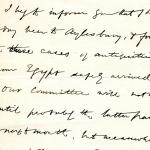 I beg to inform you that I h
ing been to Aylesbury, & fo
three cases of antiquities
om Egypt safely arrived
Our Committee will not
until probably the latter par
next month, but meanwhile